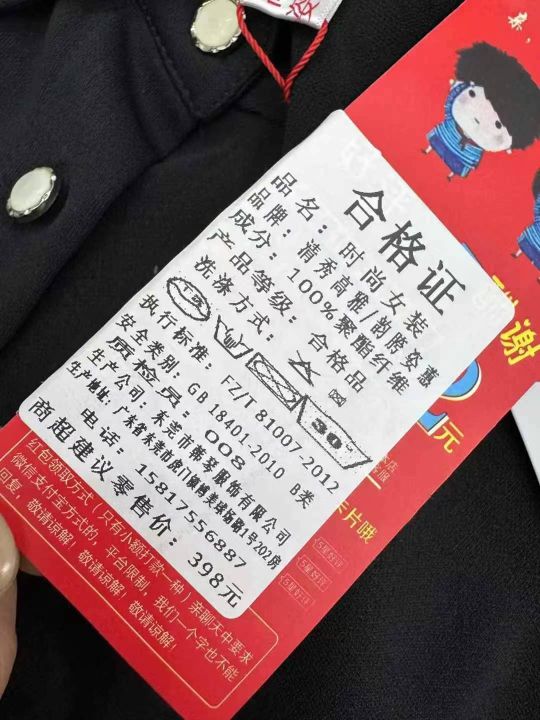 合格证
品名：时尚女装
品牌：清秀高雅/韵腾姿惠
成分：100%聚酯纤维
产品等级：合格品
洗涤方式：
30
执行标准：FZ/T 81007-2012
安全类别：GB 18401-2010 B类
质检员：008
生产公司：东莞市衡琴服饰有限公司
电话：15817556887
商超建议零售价：398元
谢
元
卡片哦
5星好评
5星好评
5星好评
红包领取方式（只有小额打款一种）亲聊天中要求
微信支付宝方式的，平台限制，我们一个字也不能
回复，敬请谅解！敬请谅解！敬请谅解！